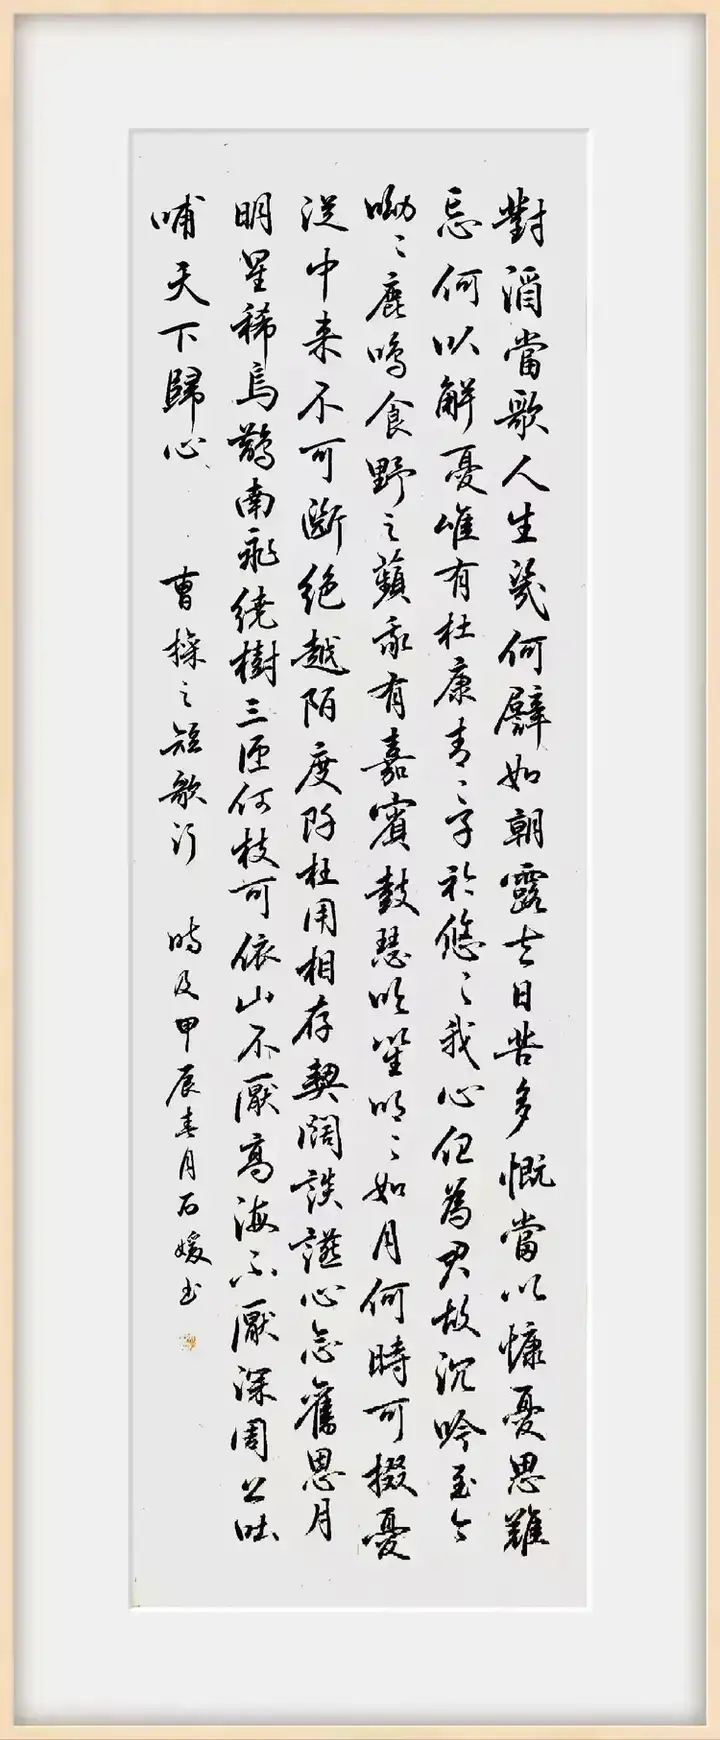 對酒當歌人生幾何譬如朝露去日苦多慨當以慷憂思難
忘何以解憂唯有杜康青〻子衿悠〻我心但為君故沉吟至今
呦〻鹿鳴食野之蘋我有嘉賓鼓瑟吹笙明〻如月何時可掇憂
從中来不可斷絶越陌度阡枉用相存契闊談讌心念舊恩月
明星稀烏鵲南飛繞樹三匝何枝可依山不厭高海不厭深周公吐
哺天下歸心 曹操之短歌行 時及甲辰春月石媛书